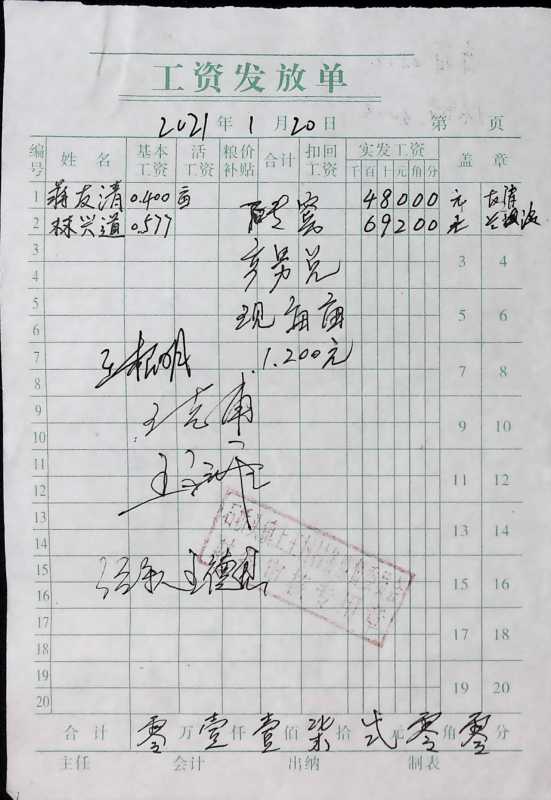 工资发放单
2021年1月20日 第 页
编号 姓名 基本工资 活工资 粮价补贴 合计 扣回工资 实发工资 千百十元角分 盖章
1 蒋友清 0.400亩 480.00 元 友清
2 林兴道 0.577 692.00 元
3 3 4
4
5 现 每亩 5 6
6
7 1.200元 7 8
8
9 王克甫 9 10
10
11 11 12
12
13 13 14
14
15 王德 15 16
16
17 17 18
18
19 19 20
20
合计 零万壹仟壹佰柒拾弍元零角零分
主任 会计 出纳 制表